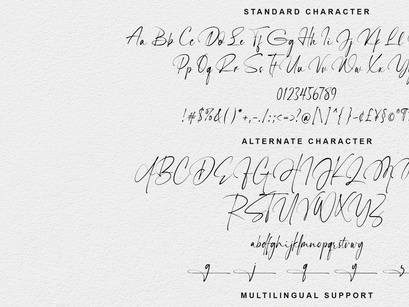 STANDARD CHARACTER
Aa Bb Cc Dd Ee Ff Gg Hh Ii Jj Kk Ll
Pp Qq Rr Ss Tt Uu Vv Ww Xx Yy
0123456789
!#$%&()*+,-./:;<=>?@[\]^{}~¢£¥
ALTERNATE CHARACTER
ABCDEFGHIJKLM
RSTUVWXYZ
abdfghijklmnopqrstuvwy
g j q y
MULTILINGUAL SUPPORT